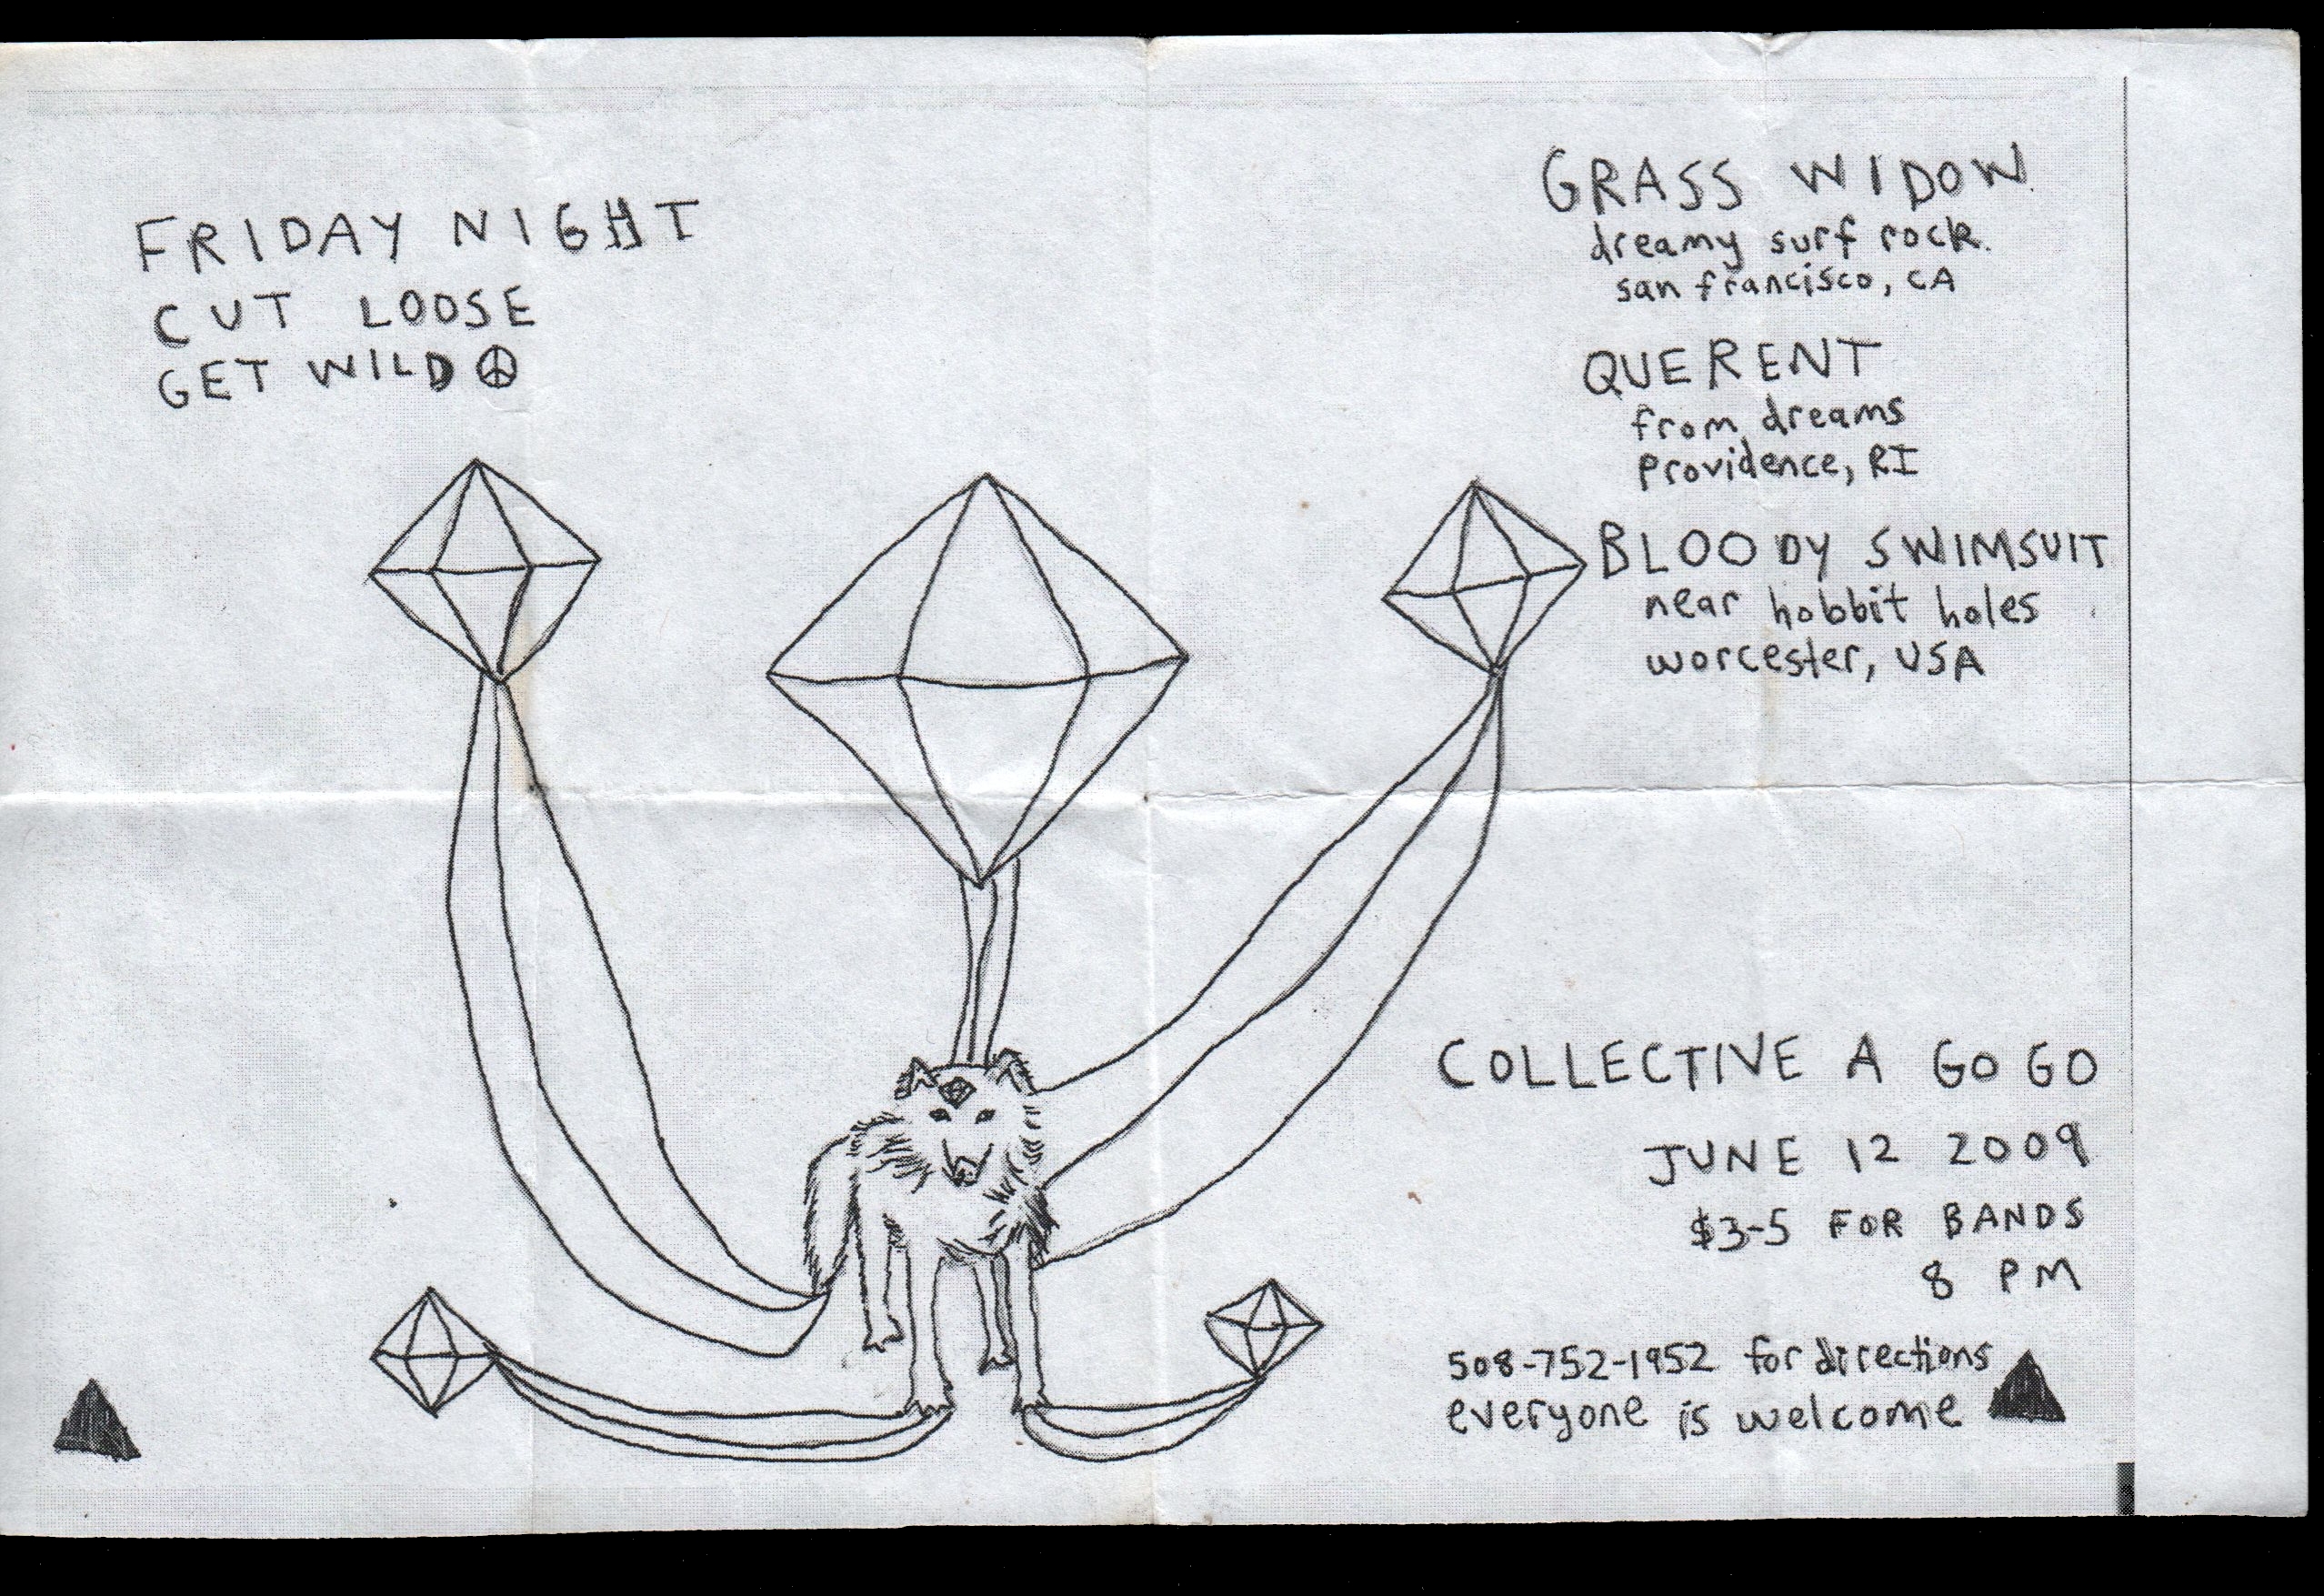 FRIDAY NIGHT
CUT LOOSE
GET WILD ☮
GRASS WIDOW
dreamy surf rock.
san francisco, CA
QUERENT
from dreams
Providence, RI
BLOODY SWIMSUIT
near hobbit holes
worcester, USA
COLLECTIVE A GO GO
JUNE 12 2009
$3-5 FOR BANDS
8 PM
508-752-1952 for directions
everyone is welcome